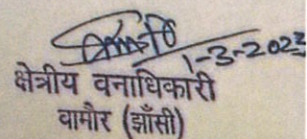 1-3-2023
क्षेत्रीय वनाधिकारी
वामौर (झाँसी)